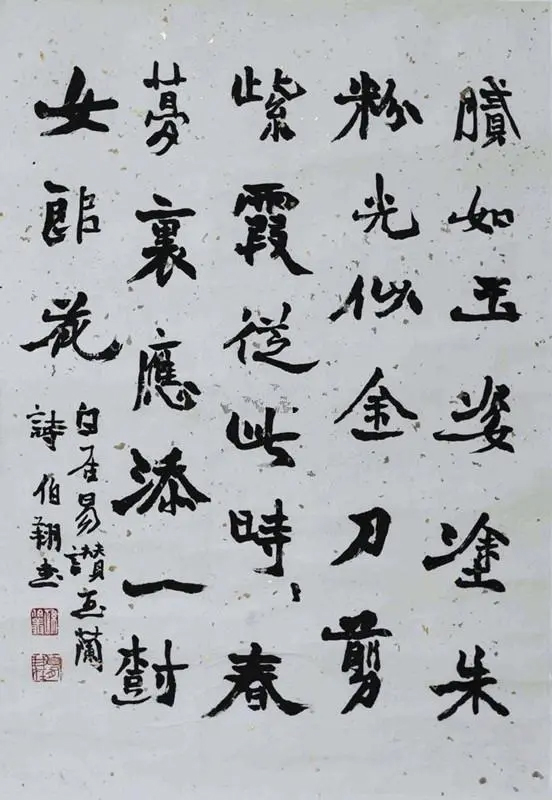 膩如玉姿塗朱
粉光似金刀剪
紫霞從此時〻春
夢裏應添一樹
女郎花
白居易讚玉蘭
詩伯翔書